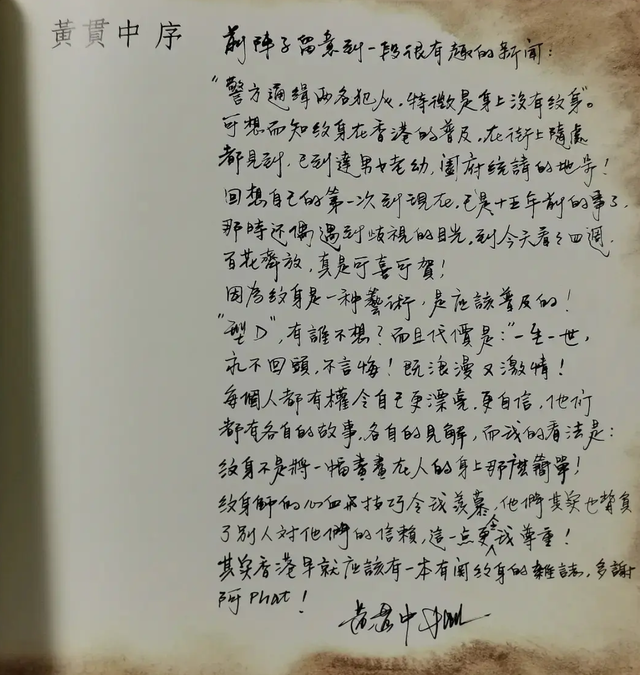 黃貫中 序
前陣子留意到一段很有趣的新聞：
“警方通緝兩名犯人，特徵是身上沒有紋身”。
可想而知紋身在香港的普及，在街上隨處
都見到，已到達男女老幼，闔府統請的地步！
回想自己的第一次到現在，已是十五年前的事了，
那時还偶遇到歧視的目光，到今天看看四週，
百花齊放，真是可喜可賀！
因為紋身是一种藝術，是应該普及的！
“型D”，有誰不想？而且代價是：“一生一世，
永不回頭，不言悔！既浪漫又激情！
每個人都有權令自己更漂亮，更自信，他们
都有各自的故事，各自的見解，而我的看法是：
紋身不是將一幅畫畫在人的身上那麽簡單！
紋身師的心血和技巧令我羨慕，他們其实也揹負
了別人对他們的信賴，這一点更令我尊重！
其实香港早就应該有一本有関紋身的雜誌，多謝
阿Phat！
黃貫中